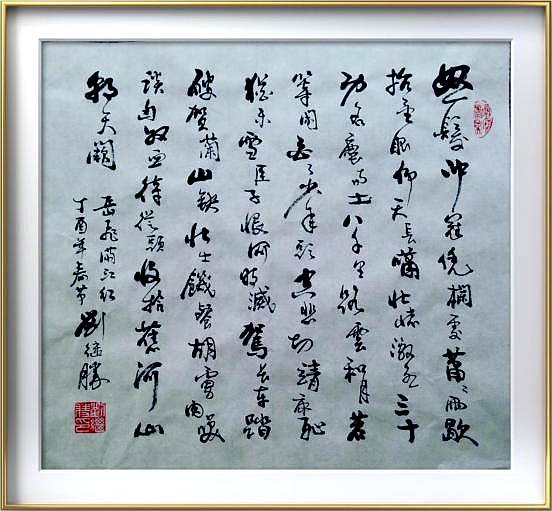 怒髮冲冠凭欄處萧萧雨歇
抬望眼仰天長嘯壯懷激烈三十
功名塵与土八千里路雲和月莫
等闲白了少年頭空悲切靖康恥
猶未雪臣子恨何時滅駕長車踏
破賀蘭山缺壯士饑餐胡虜肉笑
談匈奴血待從頭收拾舊河山
朝天闕
岳飛满江红
丁酉年春节
劉继勝